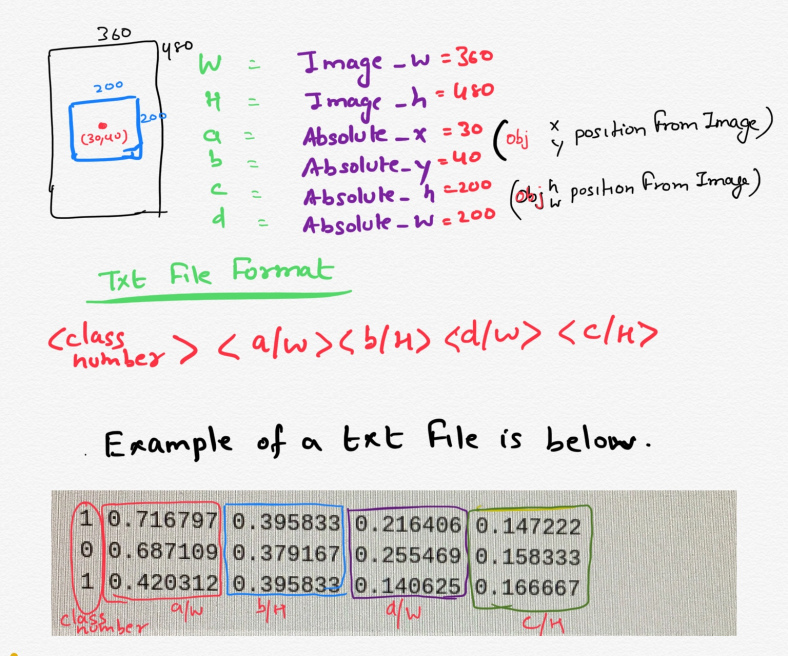 360
480
200
200
(30,40)
W = Image_w = 360
H = Image_h = 480
a = Absolute_x = 30 (obj x y position from Image)
b = Absolute_y = 40
c = Absolute_h = 200 (obj h w position from Image)
d = Absolute_w = 200
Txt File Format
<class number> <a/w> <b/H> <d/w> <c/H>
Example of a txt File is below.
1 0.716797 0.395833 0.216406 0.147222
0 0.687109 0.379167 0.255469 0.158333
1 0.420312 0.395833 0.140625 0.166667
class number a/w b/H d/w c/H